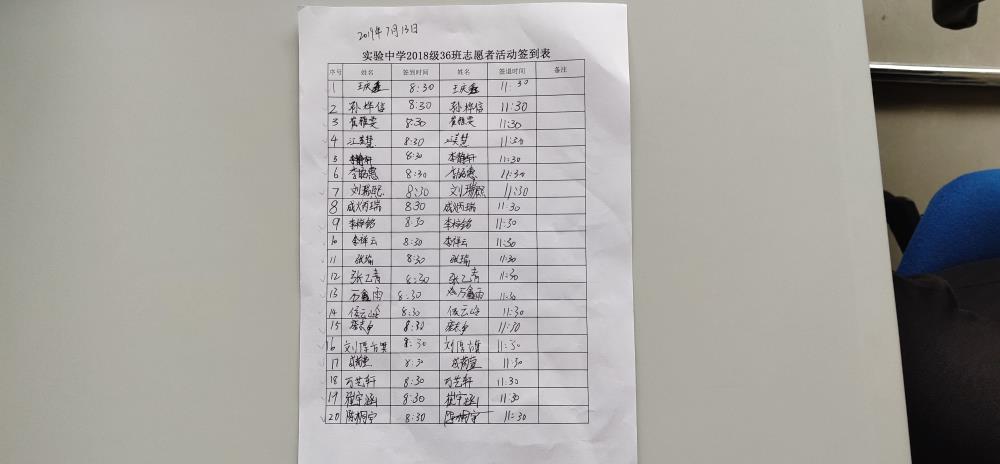 2019年7月13日
实验中学2018级36班志愿者活动签到表
序号 姓名 签到时间 姓名 签退时间 备注
1 王庆鑫 8:30 王庆鑫 11:30
2 孙烨信 8:30 孙烨信 11:30
3 崔雅雯 8:30 崔雅雯 11:30
4 江英慧 8:30 江英慧 11:30
5 李静轩 8:30 李静轩 11:30
6 8:30 11:30
7 刘瑞熙 8:30 刘瑞熙 11:30
8 成炳瑞 8:30 成炳瑞 11:30
9 李梓铭 8:30 李梓铭 11:30
10 李祥云 8:30 李祥云 11:30
11 张瑞 8:30 张瑞 11:30
12 张乙青 8:30 张乙青 11:30
13 万鑫雨 8:30 万鑫雨 11:30
14 侯云峰 8:30 侯云峰 11:30
15 8:30 11:30
16 刘厚 8:30 刘厚 11:30
17 8:30 11:30
18 万芝轩 8:30 万芝轩 11:30
19 崔宇涵 8:30 崔宇涵 11:30
20 陈桐宇 8:30 陈桐宇 11:30